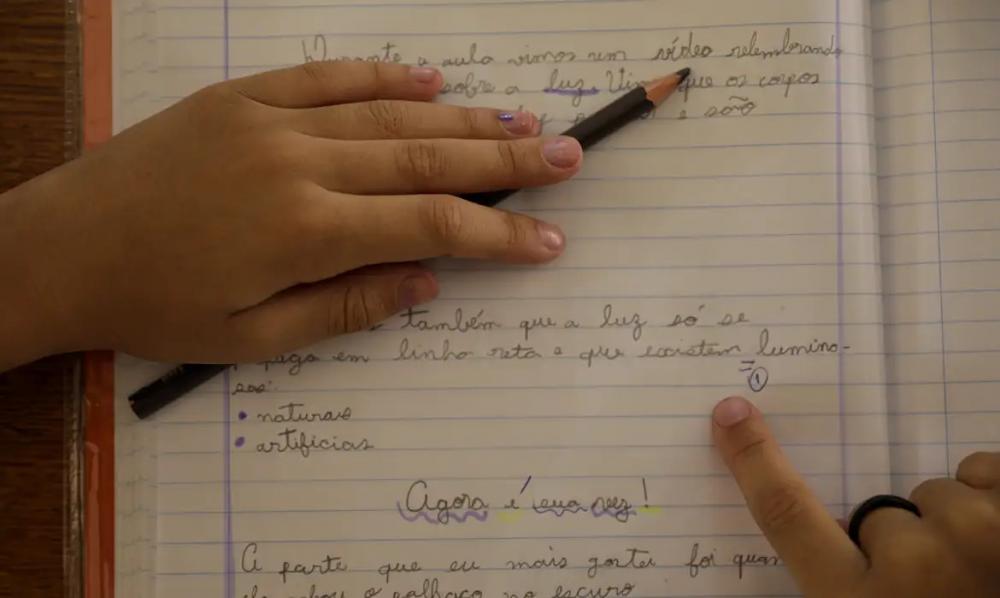 Durante a aula vimos um vídeo relembrando
sobre a luz. que os corpos
e são
também que a luz só se
em linha reta e que existem lumino-
sos:
• naturais
• artificias
①
Agora é sua vez!
A parte que eu mais gostei foi quan
o palhaço no escuro